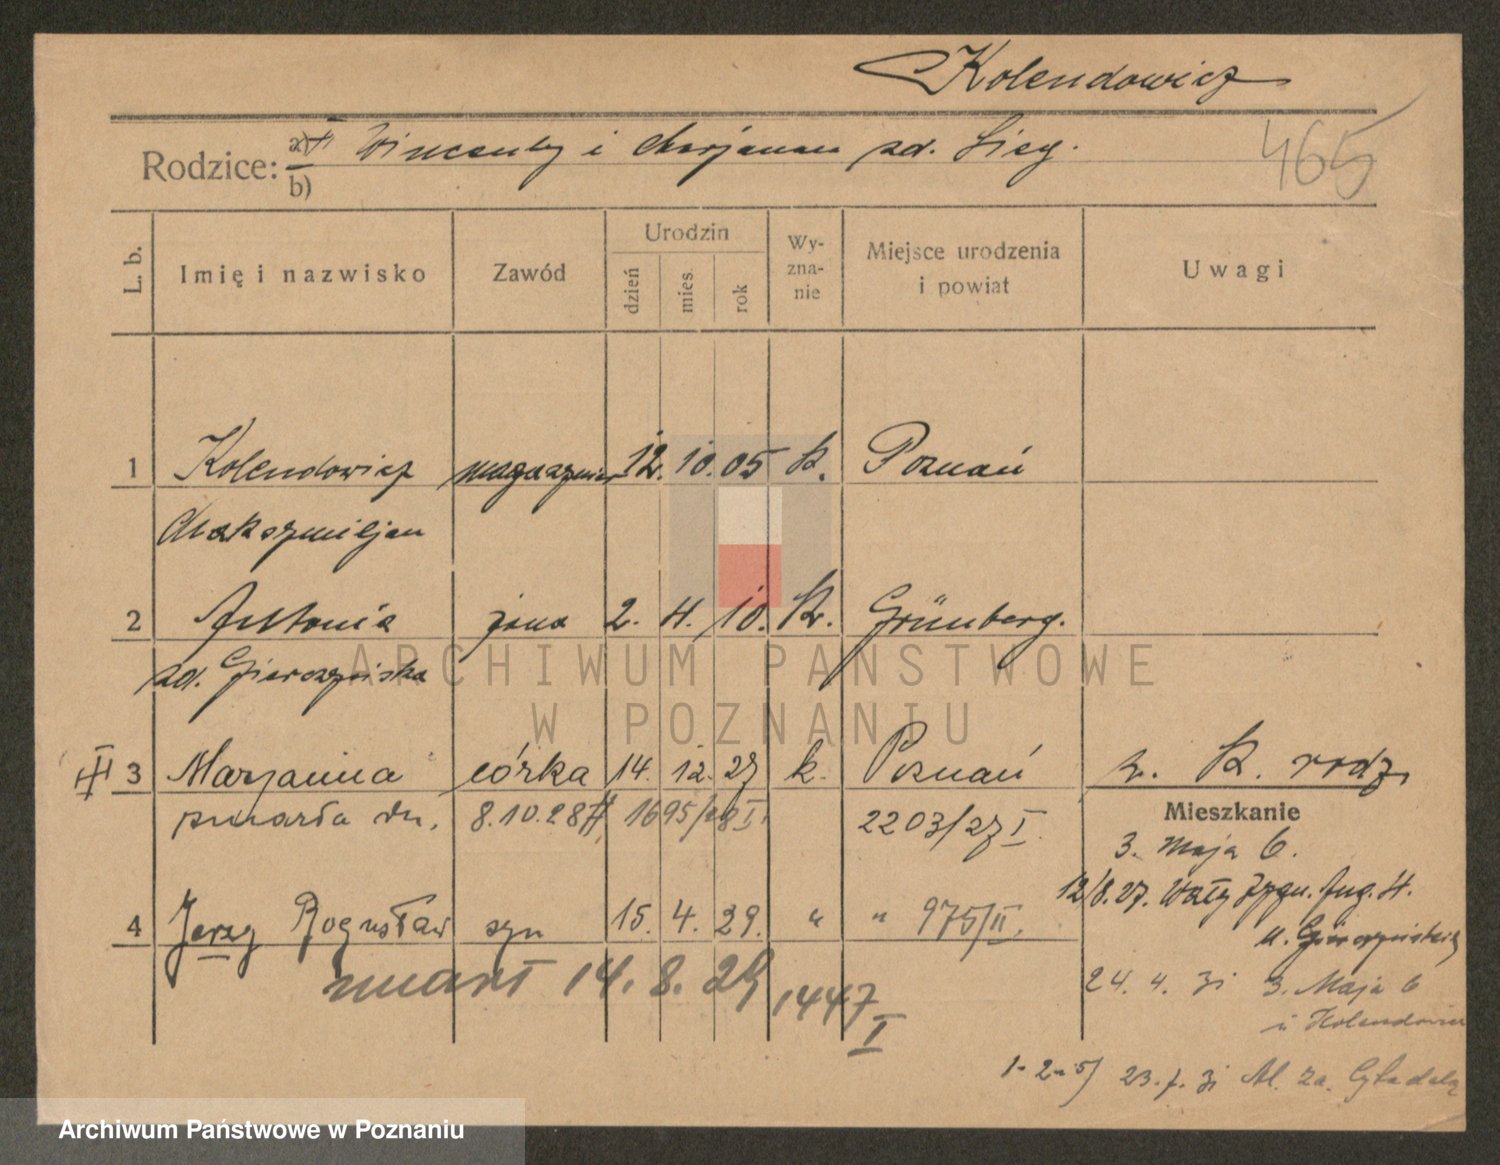 Kolendowicz
Rodzice: a) Wincenty i Marjanna zd. Sieg.
b)
465
L. b.
Imię i nazwisko
Zawód
Urodzin
dzień
mies.
rok
Wy-
zna-
nie
Miejsce urodzenia
i powiat
Uwagi
1 Kolendowicz magazynier 12. 10. 05 k. Poznań
Maksymiljan
2 Antonia żona 2. 4. 10. k. Grünberg.
zd. Gierczyńska
3 Marjanna córka 14. 12. 27 k. Poznań r. k. rodz.
zmarła dn. 8.10.28 1695/28 I. 2203/27 I.
Mieszkanie
3. Maja 6.
12/8.27. Wały Zygm. Aug. 4.
u. Gierczyńskiej
4 Jerzy Bogusław syn 15. 4. 29. " " 975/II.
zmarł 14. 8. 29 1447
I
24. 4. 31 3. Maja 6
u Kolendowicz
1-2-5) 23. 7. 31 Al. za. Cytadelą
ARCHIWUM PAŃSTWOWE
W POZNANIU
Archiwum Państwowe w Poznaniu